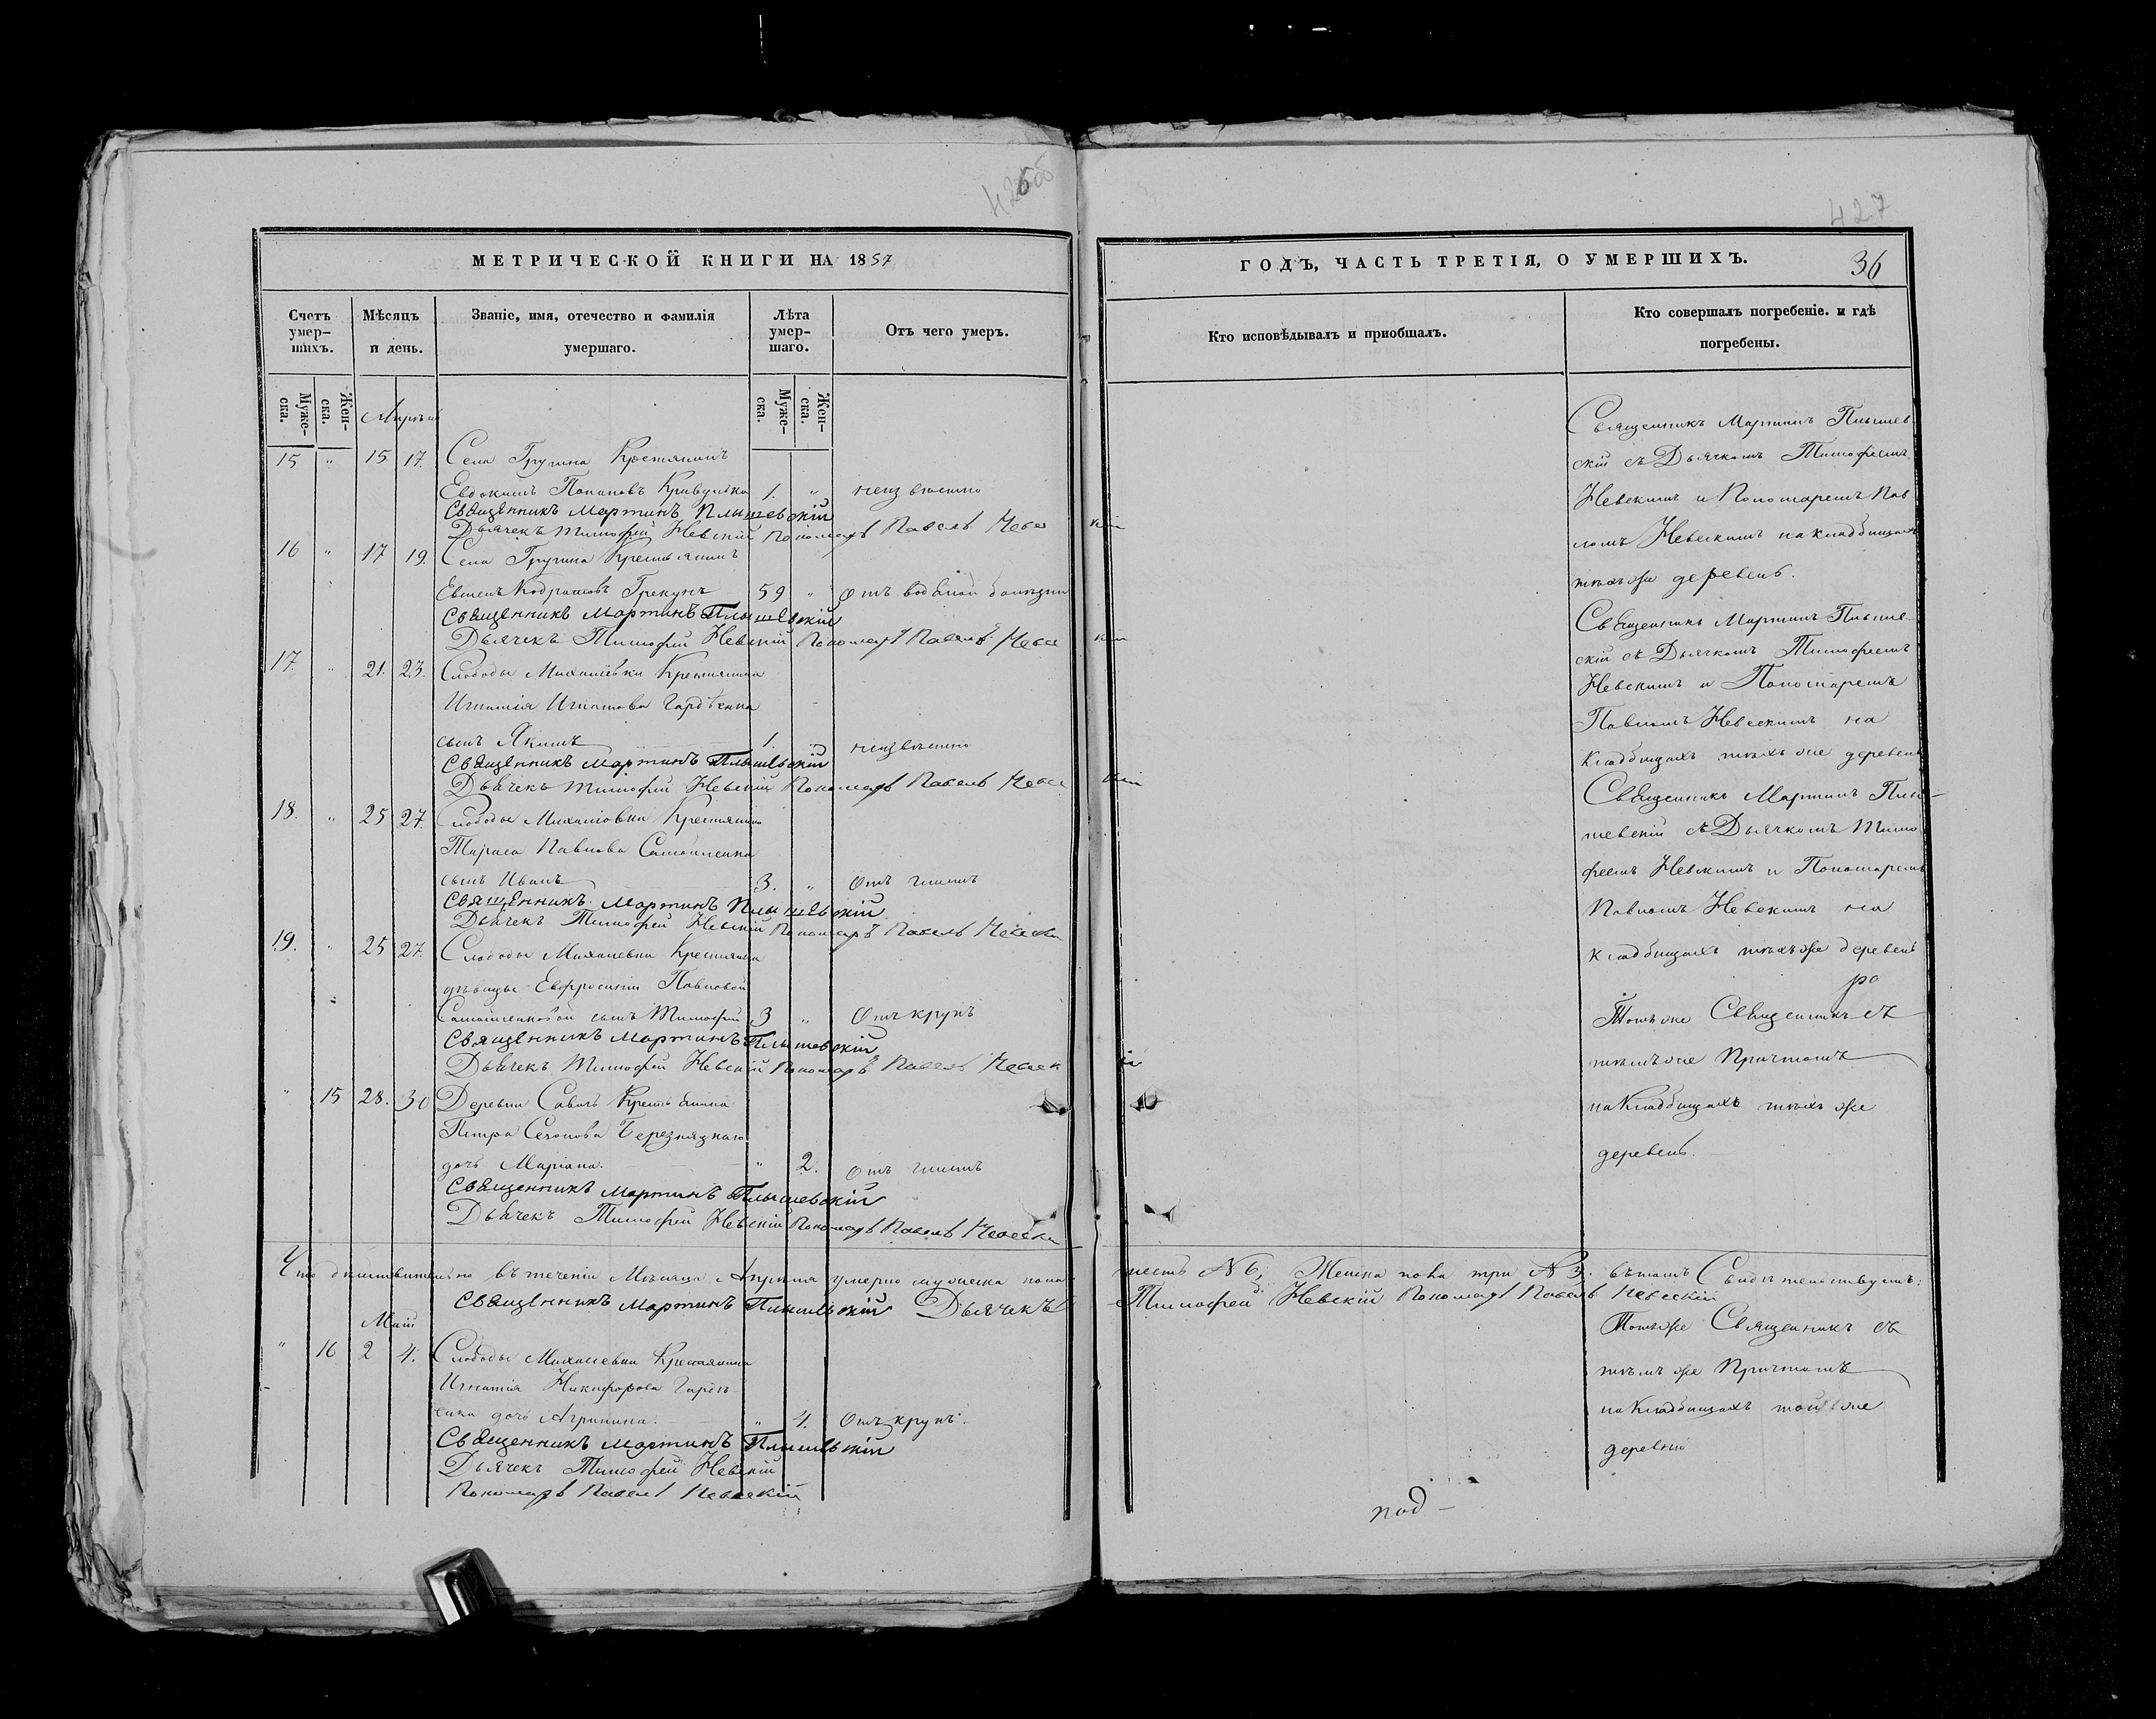 427
МЕТРИЧЕСКОЙ КНИГИ НА 1857
Счетъ умер-
шихъ.
Мѣсяцъ
и день.
Званіе, имя, отечество и фамилія
умершаго.
Лѣта
умер-
шаго.
Отъ чего умеръ.
Муже-
ска.
Жен-
ска.
Муже-
ска.
Жен-
ска.
15 " 15 17. Села Кретянинъ
Евдокимъ 1. " неизвѣстно
Священникъ Мартинъ Плышевскій
Дьячекъ Тимофей Невскій Пономарь Павелъ Невскій
16 " 17 19. Села Крестьянинъ
59 " Отъ водяной болезни
Священникъ Мартинъ Плышевскій
Дьячекъ Тимофей Невскій Пономарь Павелъ Невскій
17. " 21. 23. Слободы Крестянина
Игнатія Игнатова
сынъ Якимъ 1. " неизвѣстно
Священникъ Мартинъ Плышевскій
Дьячекъ Тимофей Невскій Пономарь Павелъ Невскій
18. " 25 27. Слободы Крестянина
Тараса Павлова Самойленка
сынъ Иванъ 3. " Отъ
Священникъ Мартинъ Плышевскій
Дьячекъ Тимофей Невскій Пономарь Павелъ Невскій
19. " 25 27. Слободы
дѣвицы Евфросиніи Павловой
сынъ Тимофей 3 " Отъ крупъ
Священникъ Мартинъ Плышевскій
Дьячекъ Тимофей Невскій Пономарь Павелъ Невскій
" 15 28. 30 Деревни
Петра
дочь Маріана. " 2. Отъ
Священникъ Мартинъ Плышевскій
Дьячекъ Тимофей Невскій Пономарь Павелъ Невскій
Что дѣйствительно въ теченіи Мѣсяца Апрѣля умерло мужеска пола шесть №6, Женска пола три №3. въ томъ Свидѣтельствуемъ:
Священникъ Мартинъ Плышевскій Дьячекъ Тимофей Невскій Пономарь Павелъ Невскій
Маій
" 16 2 4. Слободы Крестянина
Игнатія Никифорова
дочь Агрипина. " 4. Отъ крупъ.
Священникъ Мартинъ Плышевскій
Дьячекъ Тимофей Невскій
Пономарь Павелъ Невскій
ГОДЪ, ЧАСТЬ ТРЕТІЯ, О УМЕРШИХЪ. 36
Кто исповѣдывалъ и пріобщалъ.
Кто совершалъ погребеніе. и гдѣ
погребены.
Священникъ Мартинъ Плышев
скій съ Дьячкомъ Тимофеемъ
Невскимъ и Пономаремъ Пав
ломъ Невскимъ на кладбищахъ
тѣхъ же деревень.
Священникъ Мартинъ Плыше
скій съ Дьячкомъ Тимофеемъ
Невскимъ и Пономаремъ
Павломъ Невскимъ на
кладбищахъ тѣхъ же деревень
Священникъ Мартинъ Плы-
шевскій съ Дьячкомъ Тимо
феемъ Невскимъ и Пономаремъ
Павломъ Невскимъ на
кладбищахъ тѣхъ же деревень
Тотъ же Священникъ съ
тѣмъ же Причтомъ
на Кладбищахъ тѣхъ же
деревень.
Тотъ же Священникъ съ
тѣмъ же Причтомъ
на Кладбищахъ той же
деревни
под-